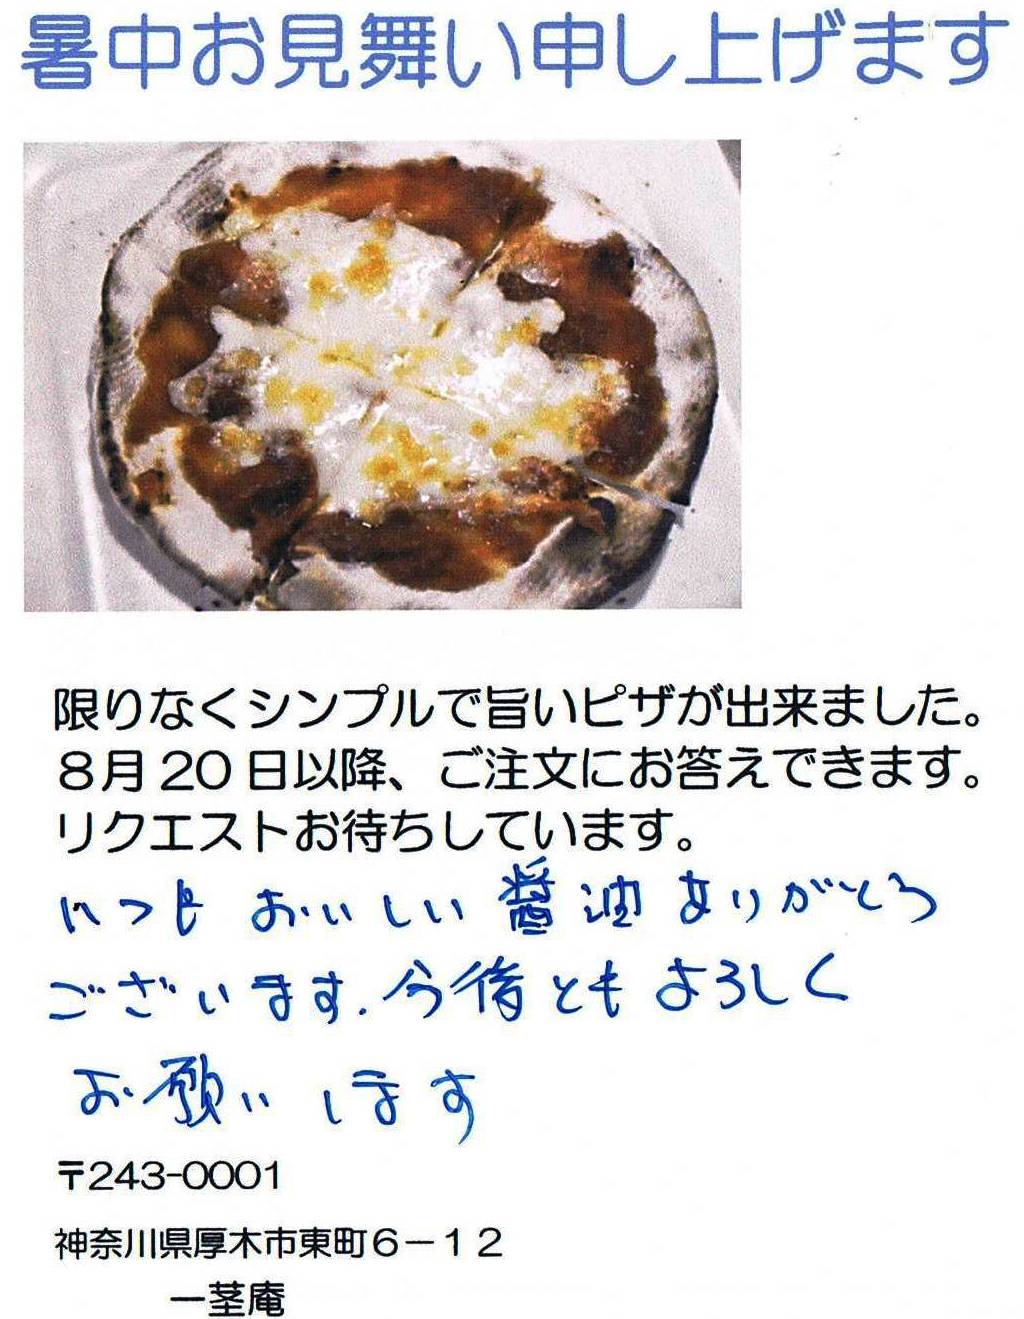 暑中お見舞い申し上げます
限りなくシンプルで旨いピザが出来ました。
８月20日以降、ご注文にお答えできます。
リクエストお待ちしています。
いつも おいしい 醤油 ありがとう
ございます. 今後ともよろしく
お願い します
〒243-0001
神奈川県厚木市東町６－１２
一茎庵